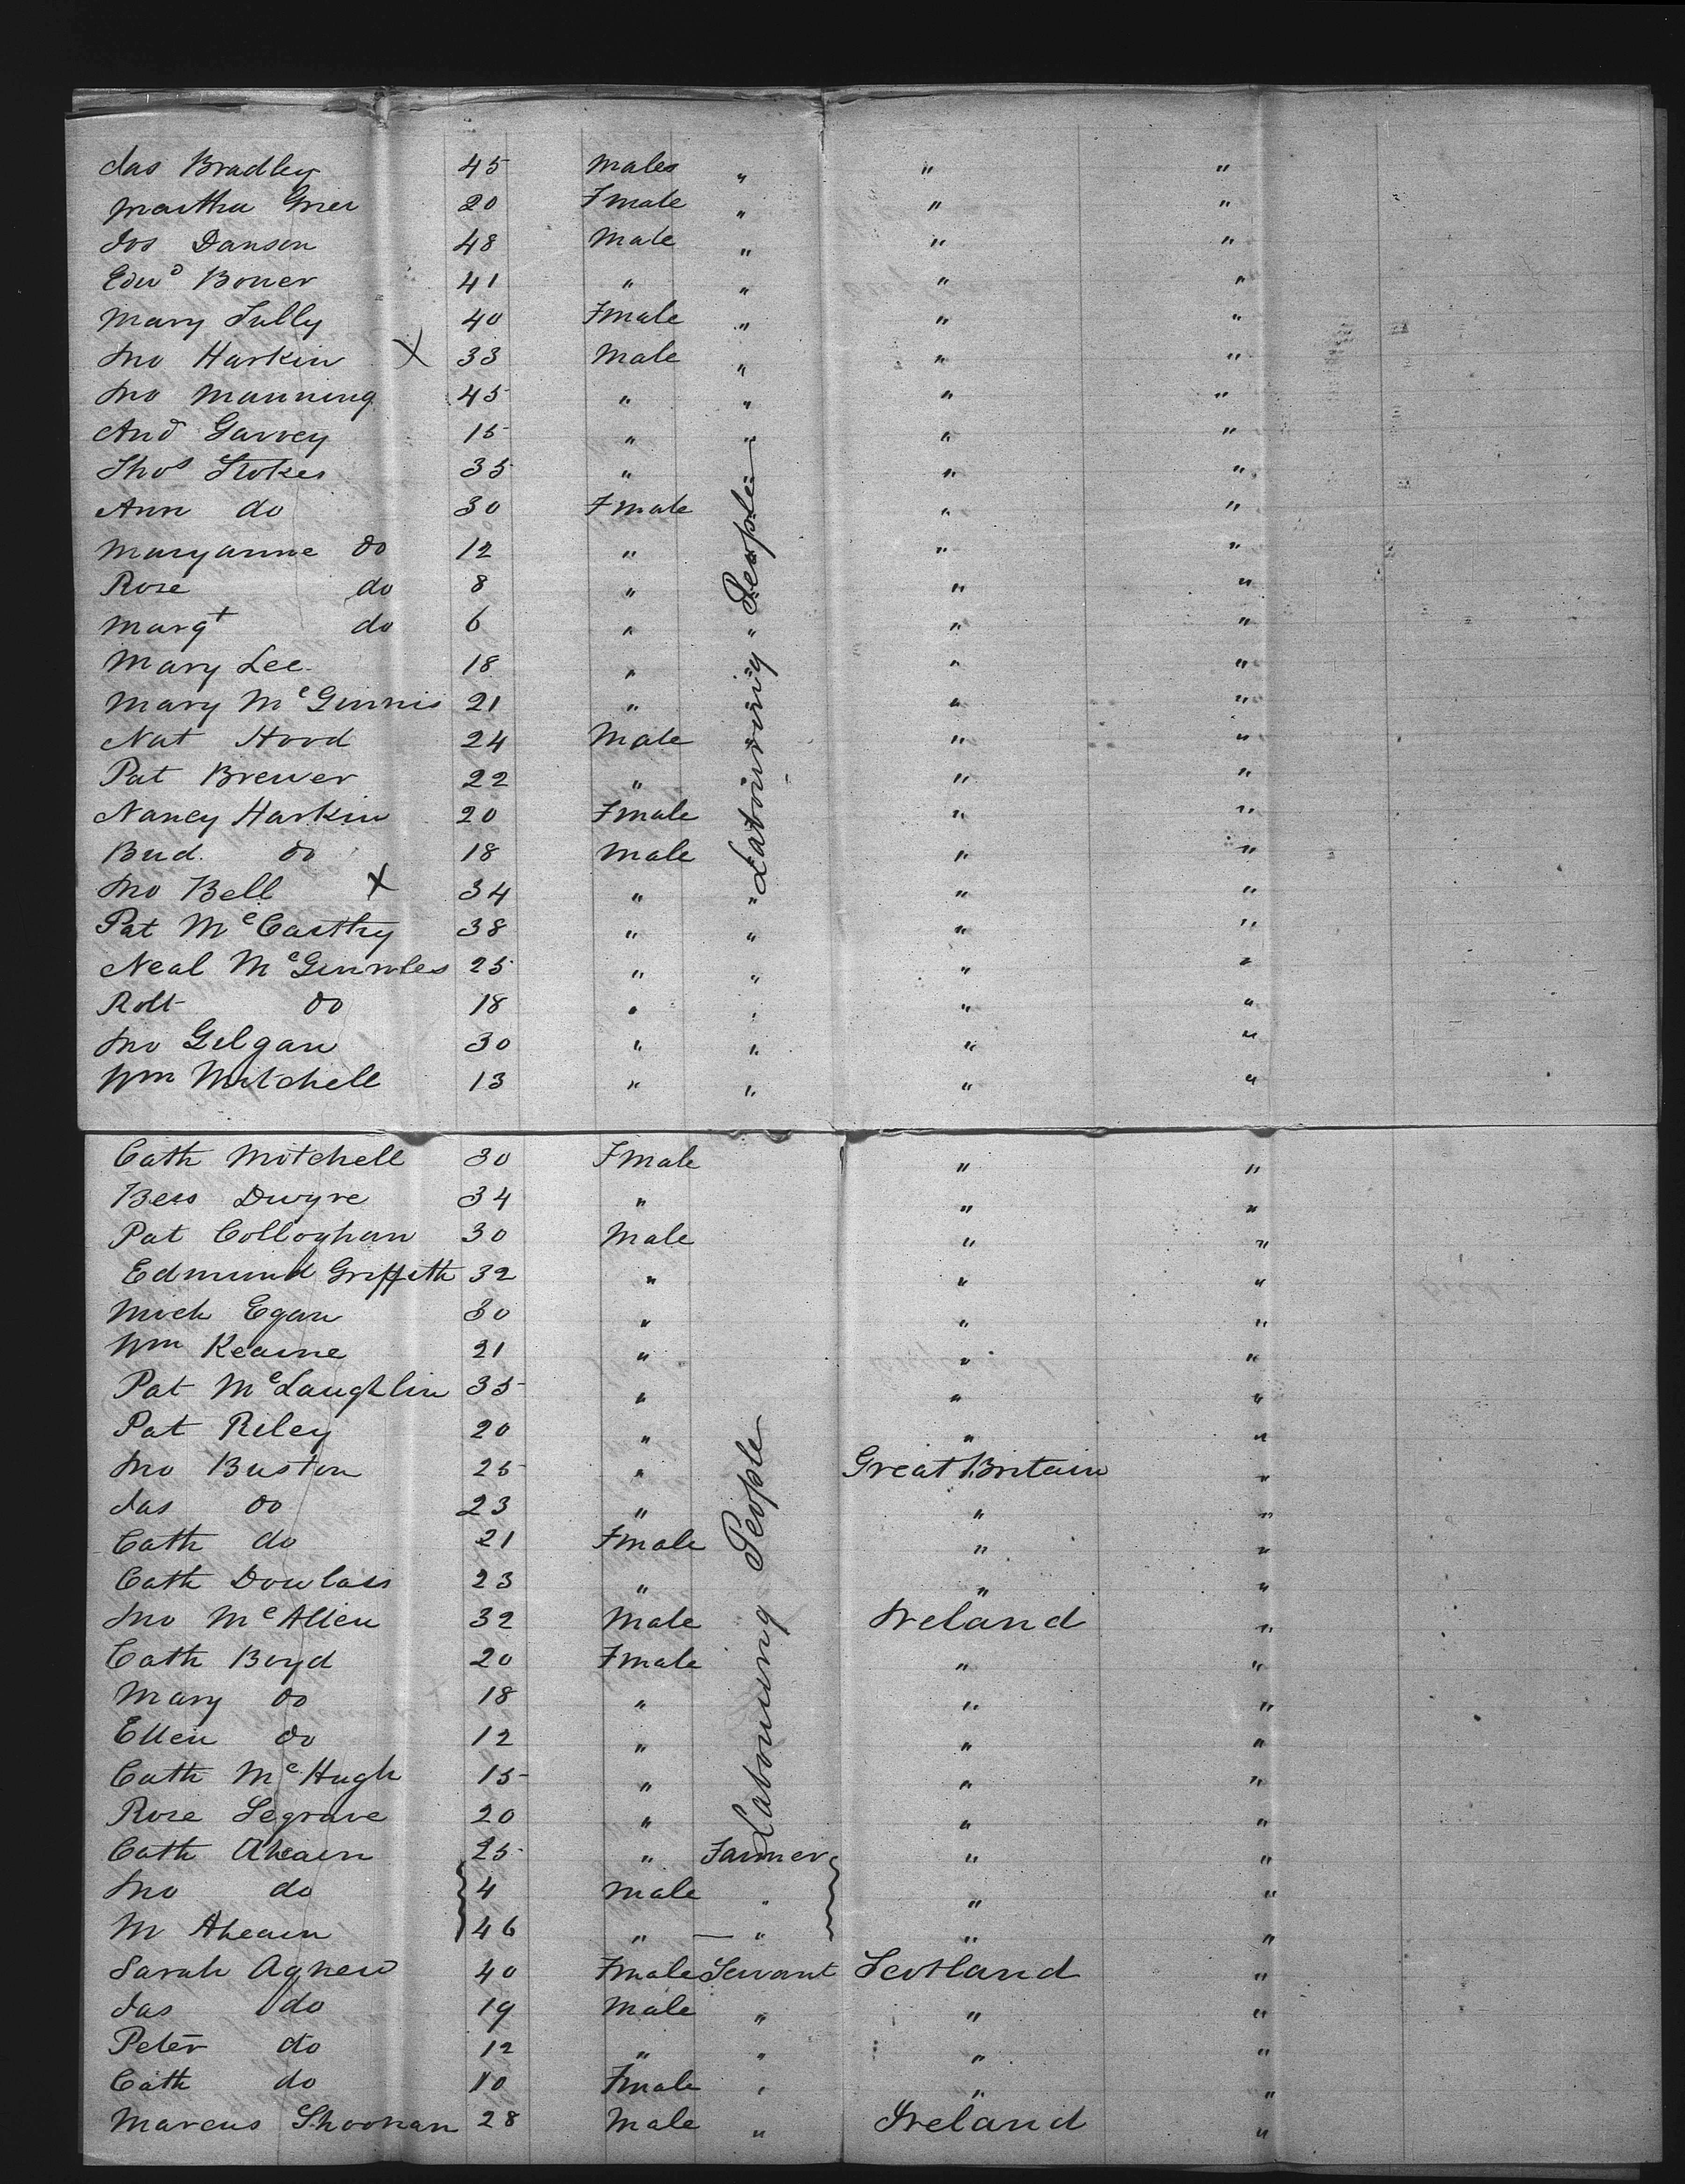 Jas Bradley 45 Males " " "
Martha Grier 20 Fmale " " "
Jos Danson 48 Male " " "
Edwd Boner 41 " " " "
Mary Tully 40 Fmale " " "
Jno Harkin X 33 Male " " "
Jno Manning 45 " " " "
And Garvey 15 " " " "
Thos Stokes 35 " " "
Ann do 30 Fmale " "
Maryanne do 12 " " "
Rose do 8 " " "
Margt do 6 " " " "
Mary Lee 18 " " "
Mary McGinnis 21 " " "
Nat Hood 24 Male " "
Pat Brewer 22 " " "
Nancy Harkin 20 Fmale " "
Bud. do 18 Male " "
Jno Bell X 34 " " " "
Labouring People
Pat McCarthy 38 " " " "
Neal McGinoles 25 " " " "
Robt do 18 " " " "
Jno Gilgan 30 " " " "
Wm Mitchell 13 " " " "
Cath Mitchell 30 Fmale " "
Bess Dwyre 34 " " "
Pat Colloghan 30 Male " "
Edmund Griffith 32 " " "
Mich Egan 30 " " "
Wm Kearne 21 " " "
Pat McLaughlin 35 " " "
Pat Riley 20 " " "
Jno Buston 25 " Great Britain "
Jas do 23 " " "
Cath do 21 Fmale " "
Cath Dowlass 23 " " "
Jno McAllen 32 Male Ireland "
Cath Boyd 20 Fmale " "
Mary do 18 " " "
Ellen do 12 " " "
Cath McHugh 15 " " "
Rose Segrave 20 " " "
Labouring People
Cath Ahearn 25 " Farmer " "
Jno do 4 Male " " "
M Ahearn 46 " — " " "
Sarah Agnew 40 Fmale Servant Scotland "
Jas do 19 Male " " "
Peter do 12 " " " "
Cath do 10 Fmale " " "
Marcus Shoonan 28 Male " Ireland "